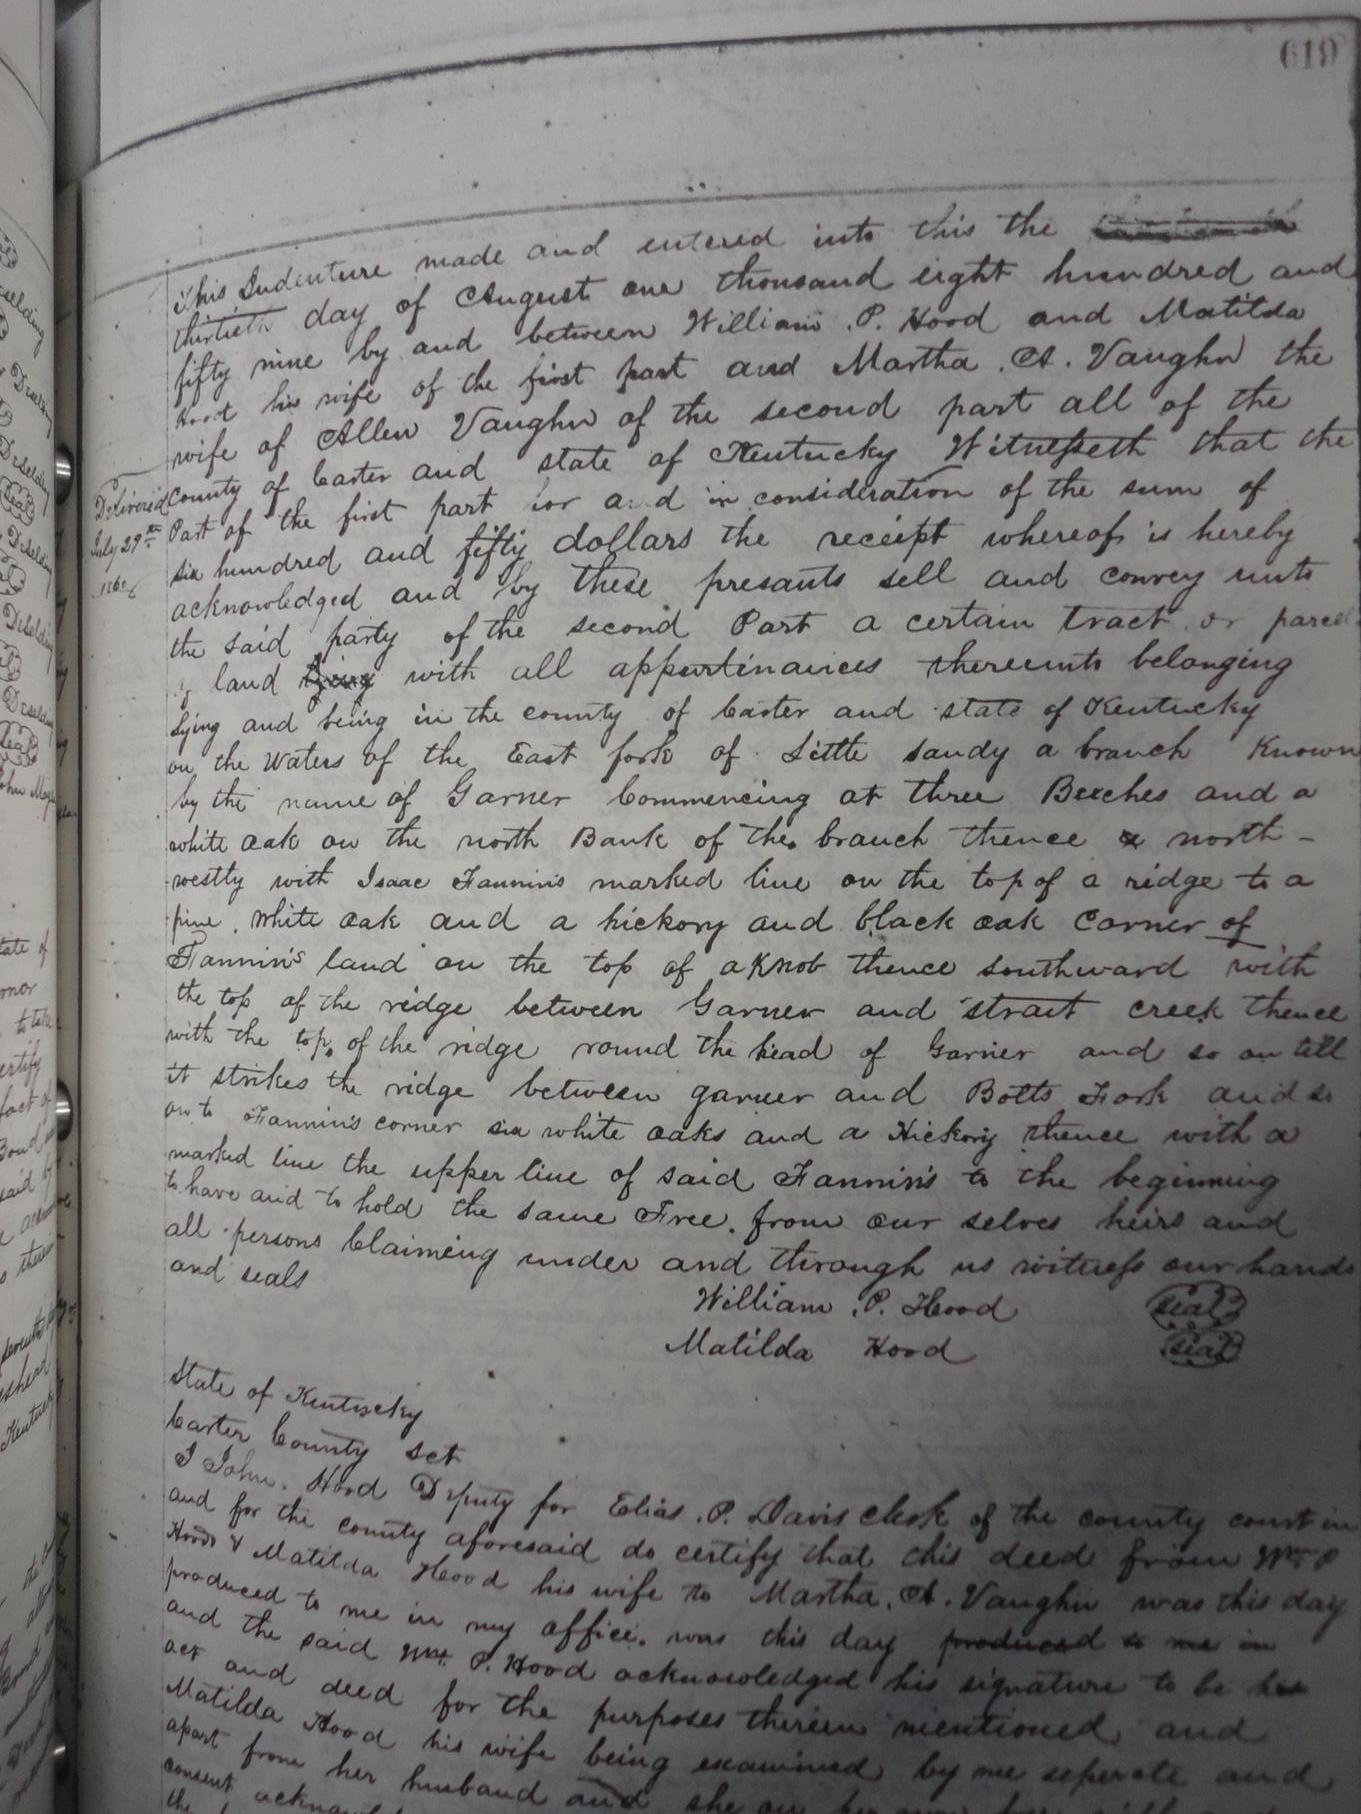 619
This Indenture made and entered into this the
thirtieth day of August one thousand eight hundred and
fifty nine by and between William . P. Hood and Matilda
Hood his wife of the first part and Martha . A . Vaughn the
wife of Allen Vaughn of the second part all of the
county of Carter and state of Kentucky Witnesseth that the
Part of the first part for and in consideration of the sum of
six hundred and fifty dollars the receipt whereof is hereby
acknowledged and by these presants sell and convey unto
the said party of the second Part a certain tract or parcel
of land lying with all appurtinances thereunto belonging
Lying and being in the county of Carter and state of Kentucky
on the Waters of the East fork of Little sandy a branch Known
by the name of Garner Commencing at three Beeches and a
white oak on the north Bank of the branch thence north -
westly with Isaac Fannin's marked line on the top of a ridge to a
pine , white oak and a hickory and black oak corner of
Fannin's land on the top of a Knob thence southward with
the top of the ridge between Garner and strait creek thence
with the top of the ridge round the head of Garner and so on till
it strikes the ridge between garner and Botts Fork and so
on to Fannin's corner six white oaks and a Hickory thence with a
marked line the upper line of said Fannin's to the beginning
to have and to hold the same Free . from our selves heirs and
all persons Claiming under and through us witness our hands
and seals
William . P. Hood seal
Matilda Hood seal
Delivered
July 29th
State of Kentucky
Carter County sct
I John . Hood Deputy for Elias . P. Davis clerk of the county court in
and for the county aforesaid do certify that this deed from Wm P
Hood & Matilda Hood his wife to Martha . A . Vaughn was this day
produced to me in my office . was this day produced to me in
and the said Wm. P. Hood acknowledged his signature to be his
act and deed for the purposes therein mentioned and
Matilda Hood his wife being examined by me seperate and
apart from her husband and she on her own
consent
the